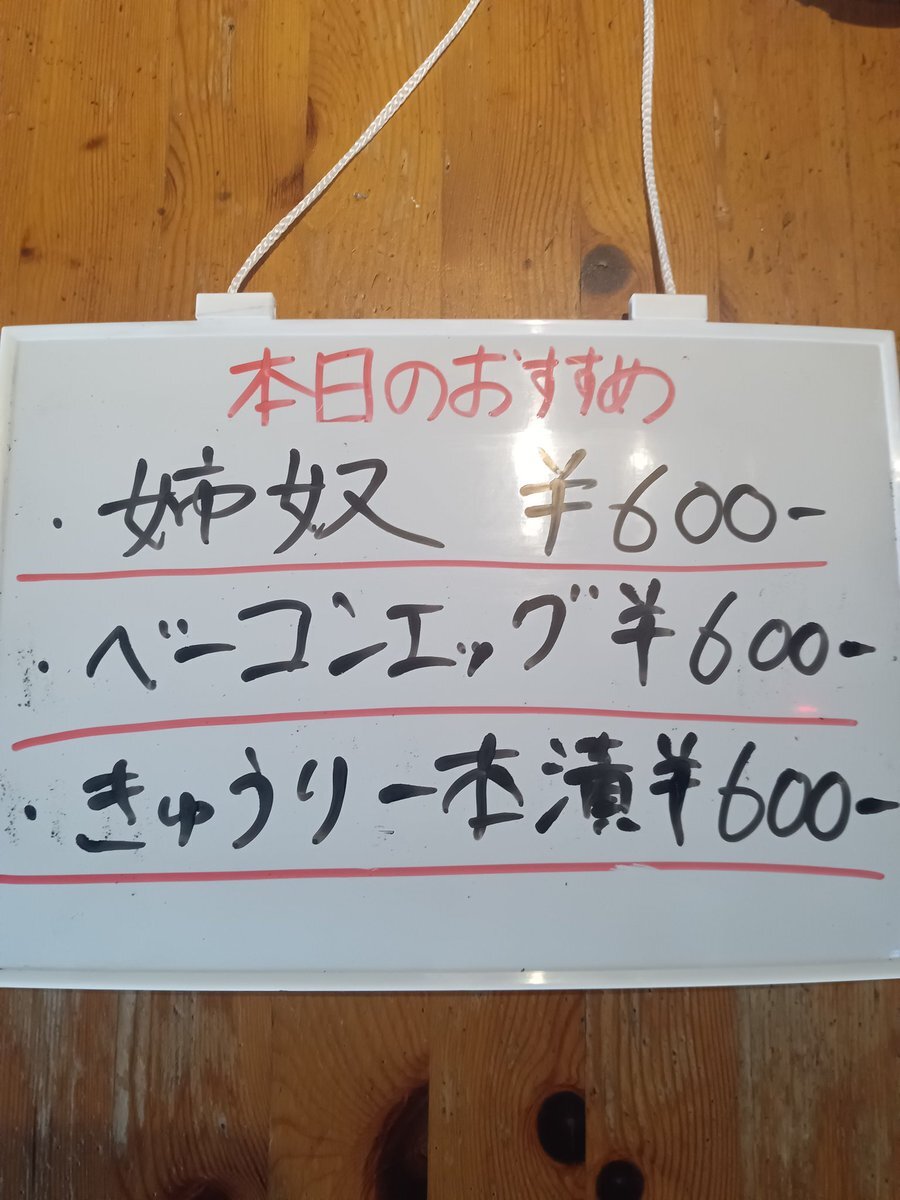 本日のおすすめ
・姉奴 ¥600-
・ベーコンエッグ ¥600-
・きゅうり一本漬 ¥600-